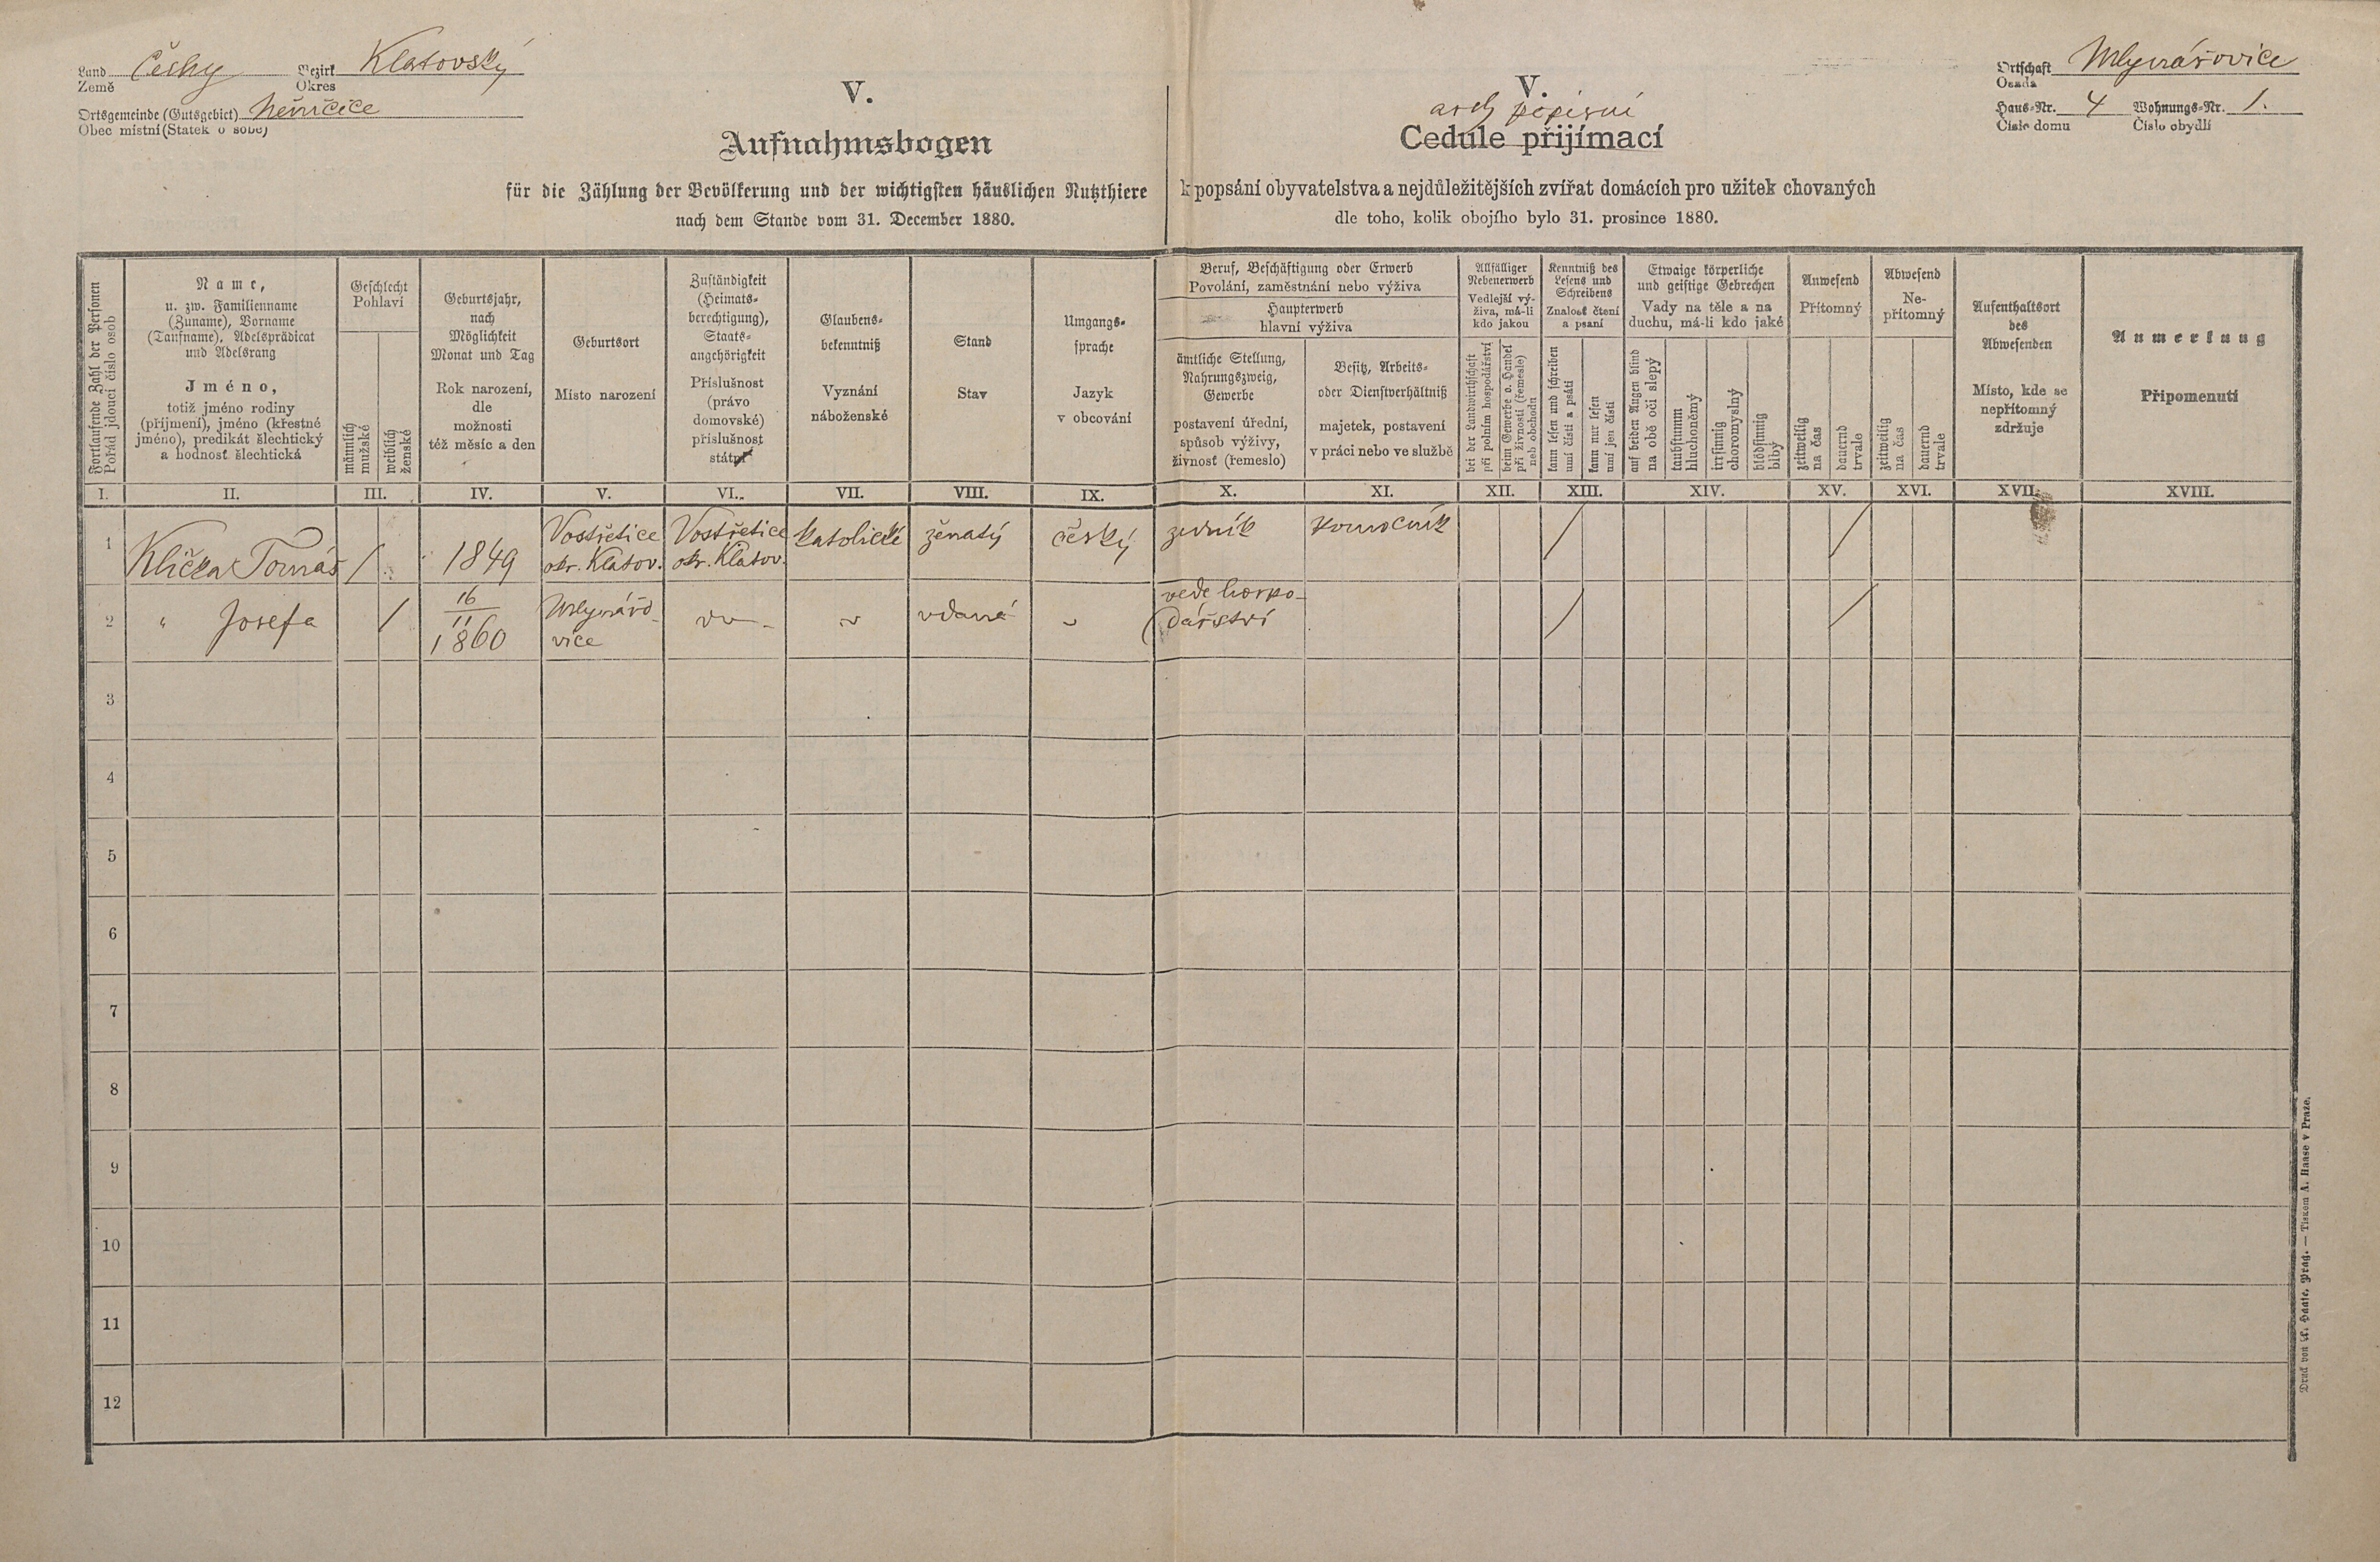 Land Čechy Bezirk Klatovský
Země Okres
Ortsgemeinde (Gutsgebiet) Němčice
Obec místní (Statek o sobě)
V.
Aufnahmsbogen
für die Zählung der Bevölkerung und der wichtigsten häuslichen Nutzthiere
nach dem Stande vom 31. December 1880.
V.
arch popisní
Cedule přijímací
k popsání obyvatelstva a nejdůležitějších zvířat domácích pro užitek chovaných
dle toho, kolik obojího bylo 31. prosince 1880.
Ortschaft Mlynářovice
Osada
Haus-Nr. 4 Wohnungs-Nr. 1.
Číslo domu Číslo obydlí
Fortlaufende Zahl der Personen
Pořád jdoucí číslo osob
Name,
u. zw. Familienname
(Zuname), Vorname
(Taufname), Adelsprädicat
und Adelsrang
Jméno,
totiž jméno rodiny
(příjmení), jméno (křestné
jméno), predikát šlechtický
a hodnost šlechtická
Geschlecht
Pohlaví
männlich
mužské
weiblich
ženské
Geburtsjahr,
nach
Möglichkeit
Monat und Tag
Rok narození,
dle
možnosti
též měsíc a den
Geburtsort
Místo narození
Zuständigkeit
(Heimats-
berechtigung),
Staats-
angehörigkeit
Příslušnost
(právo
domovské)
příslušnost
státní
Glaubens-
bekenntniß
Vyznání
náboženské
Stand
Stav
Umgangs-
sprache
Jazyk
v obcování
Beruf, Beschäftigung oder Erwerb
Povolání, zaměstnání nebo výživa
Haupterwerb
hlavní výživa
ämtliche Stellung,
Nahrungszweig,
Gewerbe
postavení úřední,
spůsob výživy,
živnosť (řemeslo)
Besitz, Arbeits-
oder Dienstverhältniß
majetek, postavení
v práci nebo ve službě
Allfälliger
Nebenerwerb
Vedlejší vý-
živa, má-li
kdo jakou
bei der Landwirthschaft
při polním hospodářství
beim Gewerbe o. Handel
při živnosti (řemesle)
neb obchodu
Kenntniß des
Lesens und
Schreibens
Znalosť čtení
a psaní
kann lesen und schreiben
umí čísti a psáti
kann nur lesen
umí jen čísti
Etwaige körperliche
und geistige Gebrechen
Vady na těle a na
duchu, má-li kdo jaké
auf beiden Augen blind
na obě oči slepý
taubstumm
hluchoněmý
irrsinnig
choromyslný
blödsinnig
blbý
Anwesend
Přítomný
zeitweilig
na čas
dauernd
trvale
Abwesend
Ne-
přítomný
zeitweilig
na čas
dauernd
trvale
Aufenthaltsort
des
Abwesenden
Místo, kde se
nepřítomný
zdržuje
Anmerkung
Připomenutí
I. II. III. IV. V. VI. VII. VIII. IX. X. XI. XII. XIII. XIV. XV. XVI. XVII. XVIII.
1 Klička Tomáš / 1849 Vostřetice okr. Klatov. Vostřetice okr. Klatov. katolické ženatý český zedník pomocník / /
2 " Josefa / 16/11 1860 Mlynářovice " " vdaná " vede hospodářství / /
3
4
5
6
7
8
9
10
11
12
Druck von A. Haase, Prag. — Tiskem A. Haase v Praze.